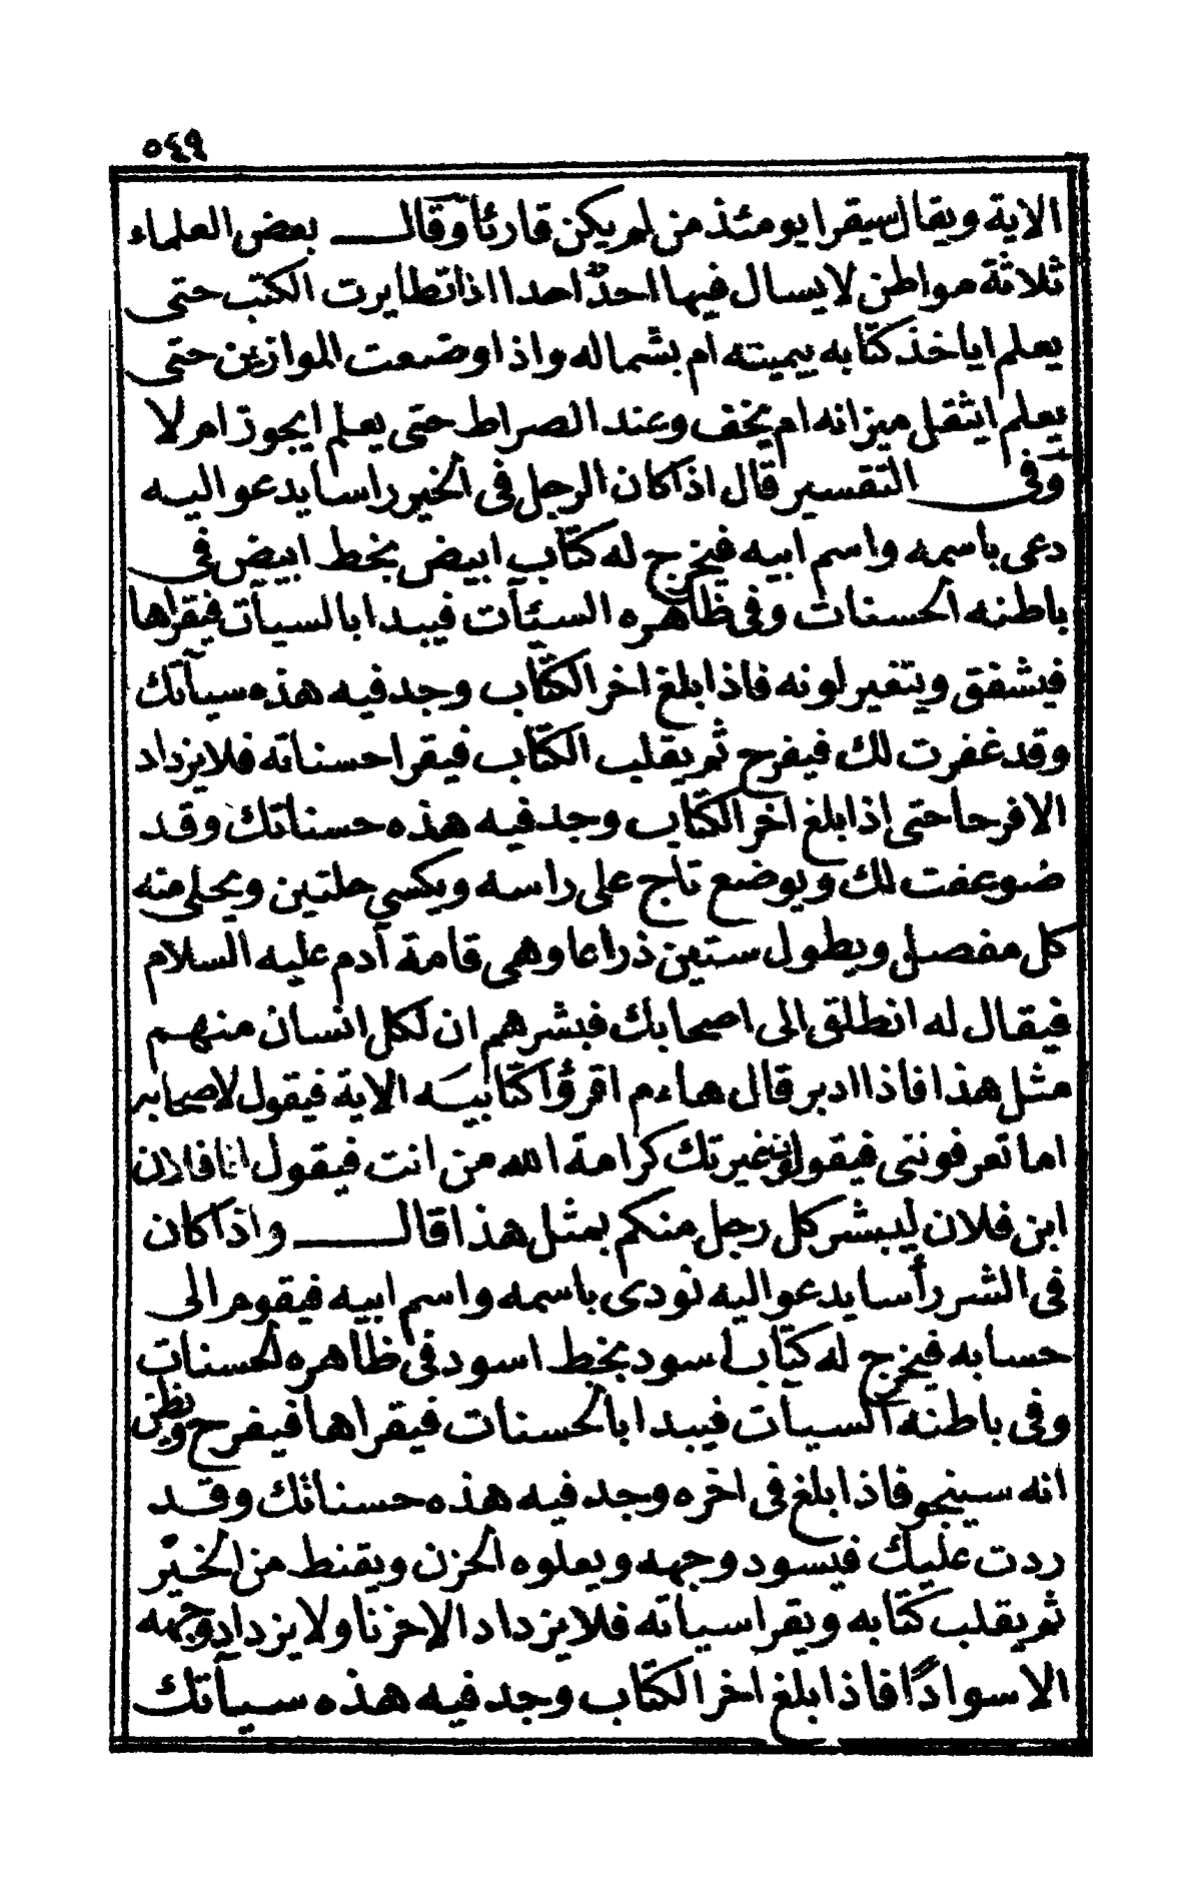 ٥٤٩
الاية ويقال سيقرا يومئذ من لم يكن قارئا وقال بعض العلماء
ثلاثة مواطن لا يسال فيها احدٌ احدا اذا تطايرت الكتب حتى
يعلم اياخذ كتابه بيمينه ام بشماله واذا وضعت الموازين حتى
يعلم ايثقل ميزانه ام يخف وعند الصراط حتى يعلم ايجوز ام لا
وفى التفسير قال اذا كان الرجل فى الخير راسا يدعو اليه
دعى باسمه واسم ابيه فيخرج له كتاب ابيض بخط ابيض فى
باطنه الحسنات وفى ظاهره السيّأت فيبدا بالسيأت فيقراها
فيشفق ويتغير لونه فاذا بلغ اخر الكتاب وجد فيه هذه سيأتك
وقد غفرت لك فيفرح ثم يقلب الكتاب فيقرا حسناته فلا يزداد
الا فرحا حتى اذا بلغ اخر الكتاب وجد فيه هذه حسناتك وقد
ضوعفت لك ويوضع تاج على راسه ويكسى حلتين ويحلى منه
كل مفصل ويطول ستين ذراعا وهى قامة آدم عليه السلام
فيقال له انطلق الى اصحابك فبشرهم ان لكل انسان منهم
مثل هذا فاذا ادبر قال هاءم اقرؤا كتابيَه الاية فيقول لاصحابه
اما تعرفوننى فيقولون غيرتك كرامة الله من انت فيقول انا فلان
ابن فلان ليبشر كل رجل منكم بمثل هذا قال واذا كان
فى الشر رأسا يدعو اليه نودى باسمه واسم ابيه فيقوم الى
حسابه فيخرج له كتاب اسود بخط اسود فى ظاهره الحسنات
وفى باطنه السيأت فيبدا بالحسنات فيقراها فيفرح ويظن
انه سينجو فاذا بلغ فى اخره وجد فيه هذه حسناتك وقد
ردت عليك فيسود وجهه ويعلوه الحزن ويقنط من الخيْر
ثم يقلب كتابه ويقرا سيأته فلا يزداد الا حزنا ولا يزداد وجهه
الا سوادًا فاذا بلغ اخر الكتاب وجد فيه هذه سيأتك